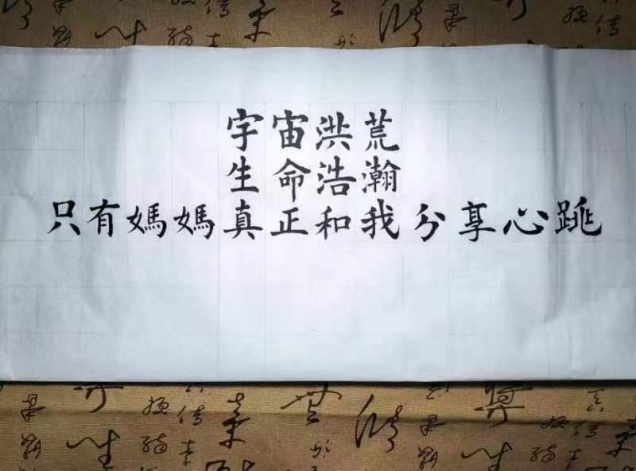 宇宙洪荒
生命浩瀚
只有媽媽真正和我分享心跳